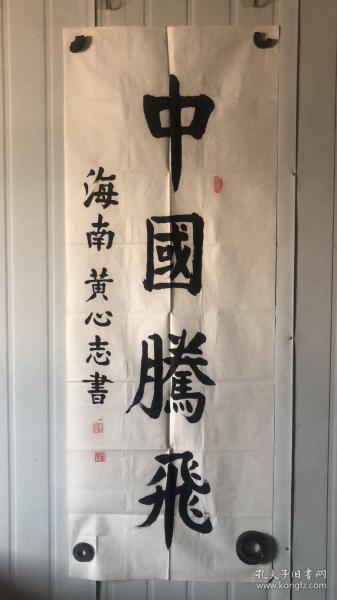 中國騰飛
海南黄心志書
孔夫子旧书网
www.kongfz.com